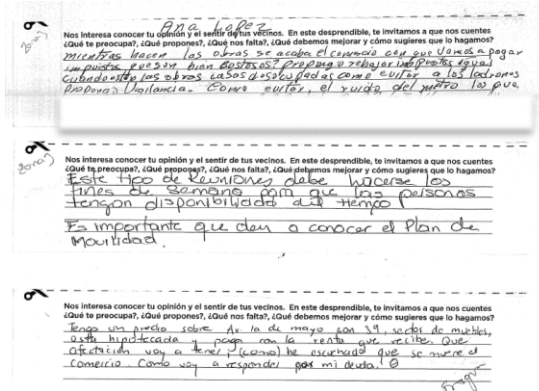 Ana Lopez
Nos interesa conocer tu opinión y el sentir de tus vecinos. En este desprendible, te invitamos a que nos cuentes
¿Qué te preocupa?, ¿Qué propones?, ¿Qué nos falta?, ¿Qué debemos mejorar y cómo sugieres que lo hagamos?
mientras hacen las obras se acaba el comercio con que vamos a pagar
impuestos que son bien costosos? propongo rebajar impuestos igual
cuando esten las obras casas desocupadas como evitar a los ladrones
propongo Vigilancia. Como evitar, el ruido del metro los que
zona
Nos interesa conocer tu opinión y el sentir de tus vecinos. En este desprendible, te invitamos a que nos cuentes
¿Qué te preocupa?, ¿Qué propones?, ¿Qué nos falta?, ¿Qué debemos mejorar y cómo sugieres que lo hagamos?
Este tipo de Reuniones debe hacerse los
fines de semana para que las personas
tengan disponibilidad del tiempo
Es importante que den a conocer el Plan de
Movilidad.
Nos interesa conocer tu opinión y el sentir de tus vecinos. En este desprendible, te invitamos a que nos cuentes
¿Qué te preocupa?, ¿Qué propones?, ¿Qué nos falta?, ¿Qué debemos mejorar y cómo sugieres que lo hagamos?
Tengo un predio sobre Av 1a de mayo con 39, sector de muebles,
esta hipotecada y pago con la renta que recibe. Que
afectación voy a tener, (como) he escuchado que se muere el
comercio. Como voy a responder por mi deuda.